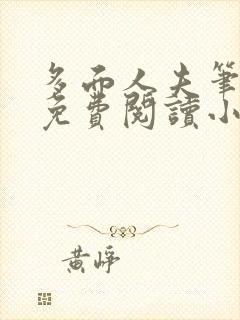 多而人夫筆
免費閱讀小
黃崢